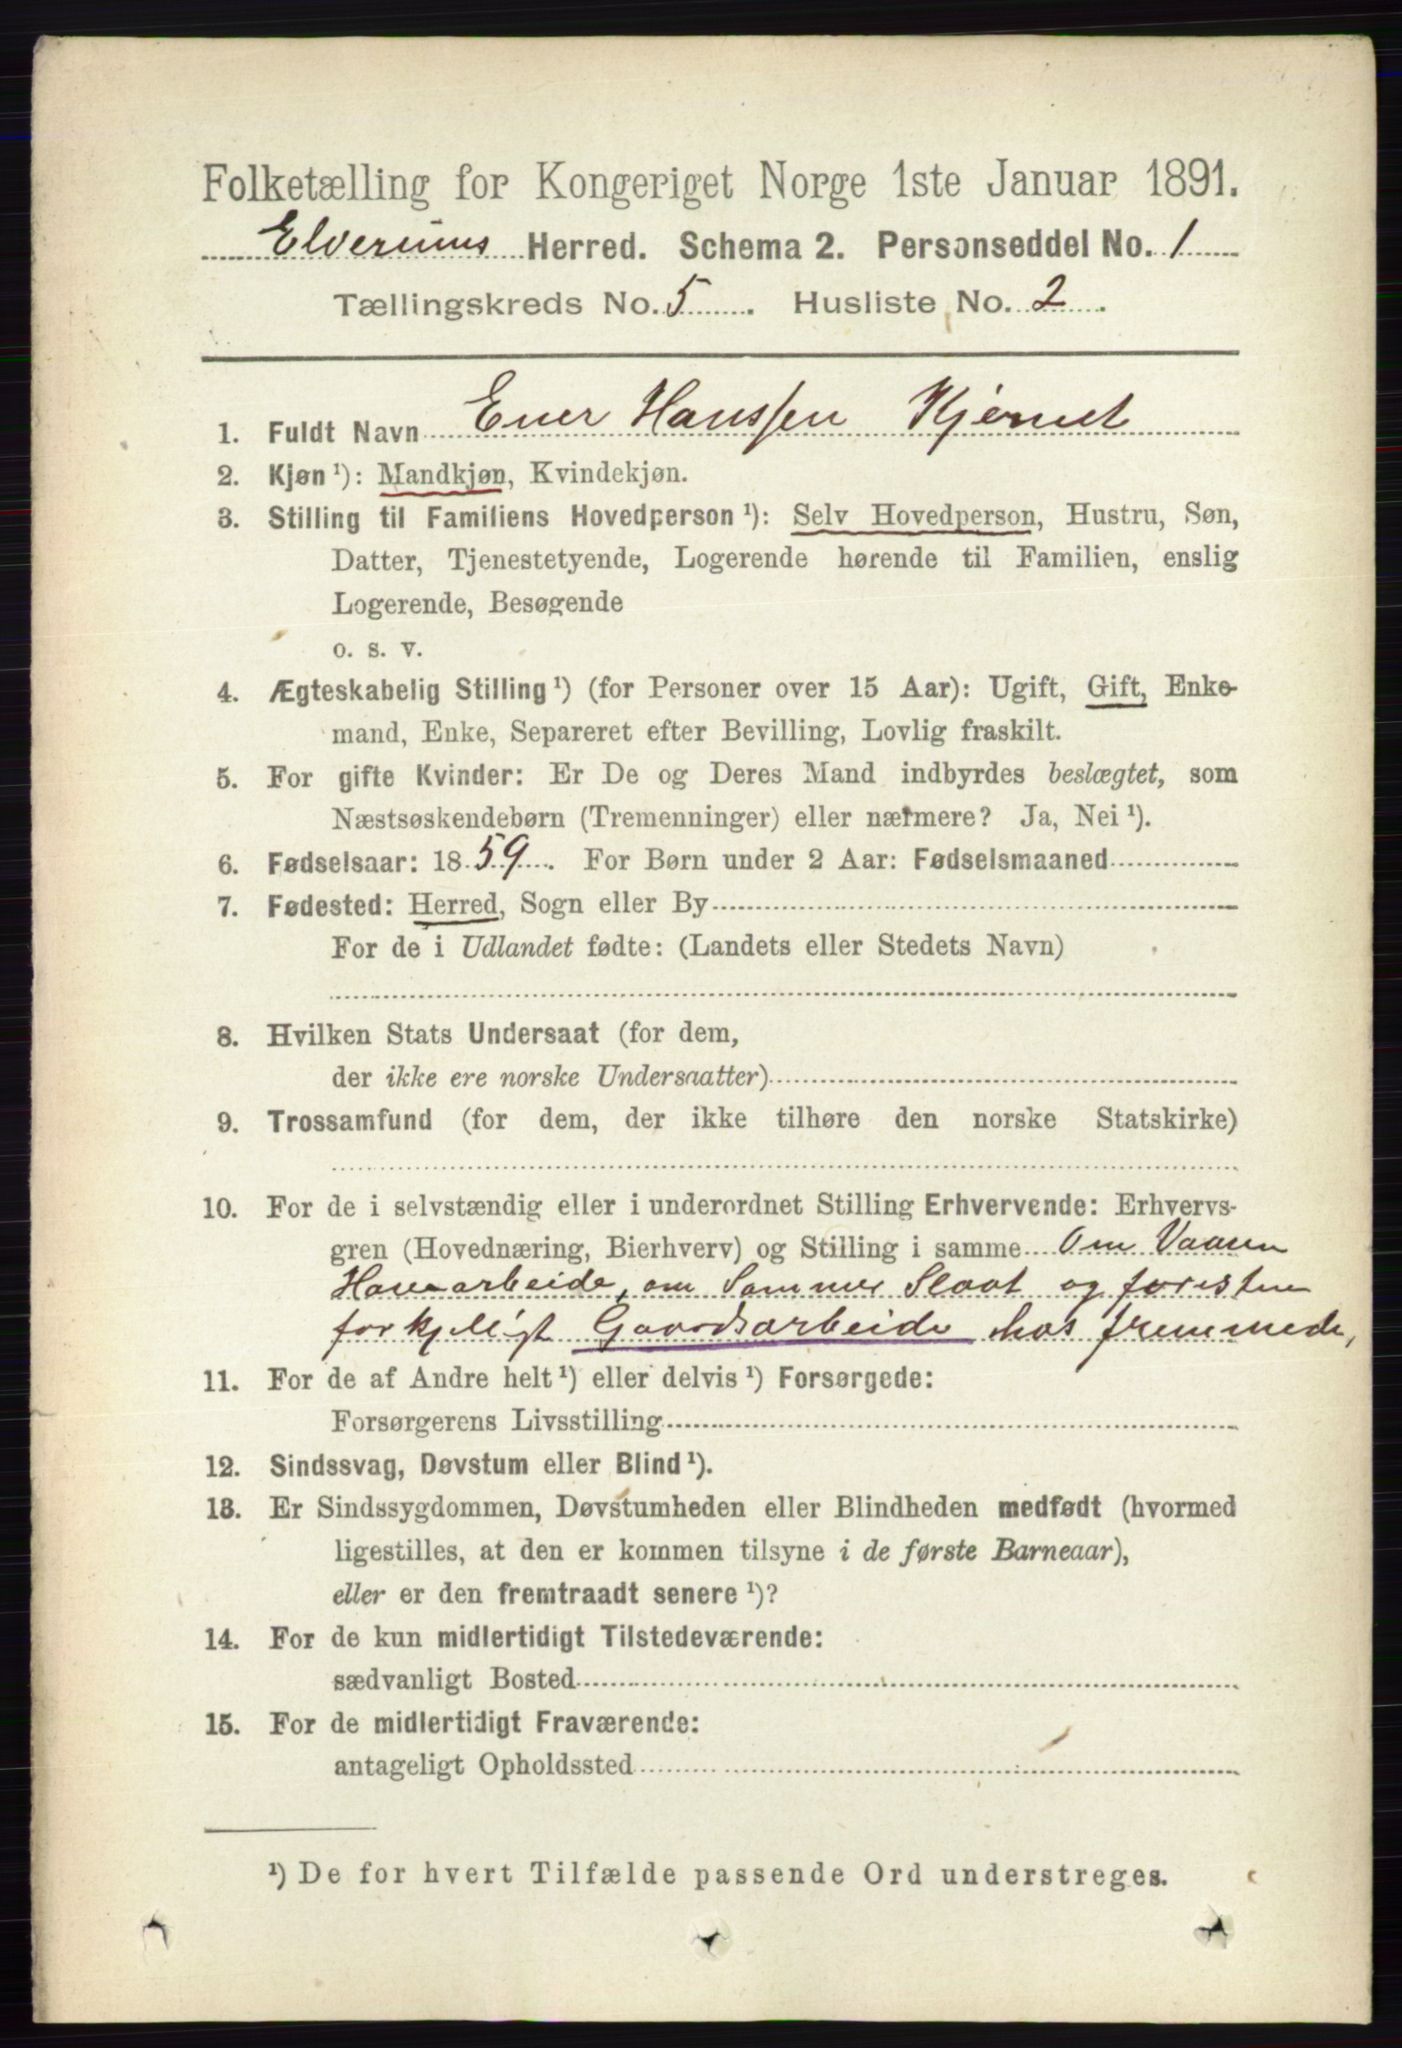 Folketælling for Kongeriget Norge 1ste Januar 1891.
Elverums Herred. Schema 2. Personseddel No. 1
Tællingskreds No. 5. Husliste No. 2.
1. Fuldt Navn Ener Hanssen Kjernet
2. Kjøn ¹): Mandkjøn, Kvindekjøn.
3. Stilling til Familiens Hovedperson ¹): Selv Hovedperson, Hustru, Søn,
Datter, Tjenestetyende, Logerende hørende til Familien, enslig
Logerende, Besøgende
o. s. v.
4. Ægteskabelig Stilling ¹) (for Personer over 15 Aar): Ugift, Gift, Enke-
mand, Enke, Separeret efter Bevilling, Lovlig fraskilt.
5. For gifte Kvinder: Er De og Deres Mand indbyrdes beslægtet, som
Næstsøskendebørn (Tremenninger) eller nærmere? Ja, Nei ¹).
6. Fødselsaar: 1859. For Børn under 2 Aar: Fødselsmaaned
7. Fødested: Herred, Sogn eller By
For de i Udlandet fødte: (Landets eller Stedets Navn)
8. Hvilken Stats Undersaat (for dem,
der ikke ere norske Undersaatter)
9. Trossamfund (for dem, der ikke tilhøre den norske Statskirke)
10. For de i selvstændig eller i underordnet Stilling Erhvervende: Erhvervs-
gren (Hovednæring, Bierhverv) og Stilling i samme Om Vaaren
Havearbeide, om Sommer Slaat og foresten
forkjelligt Gaardsarbeide hos fremmede,
11. For de af Andre helt ¹) eller delvis ¹) Forsørgede:
Forsørgerens Livsstilling
12. Sindssvag, Døvstum eller Blind ¹).
13. Er Sindssygdommen, Døvstumheden eller Blindheden medfødt (hvormed
ligestilles, at den er kommen tilsyne i de første Barneaar),
eller er den fremtraadt senere ¹)?
14. For de kun midlertidigt Tilstedeværende:
sædvanligt Bosted
15. For de midlertidigt Fraværende:
antageligt Opholdssted
¹) De for hvert Tilfælde passende Ord understreges.